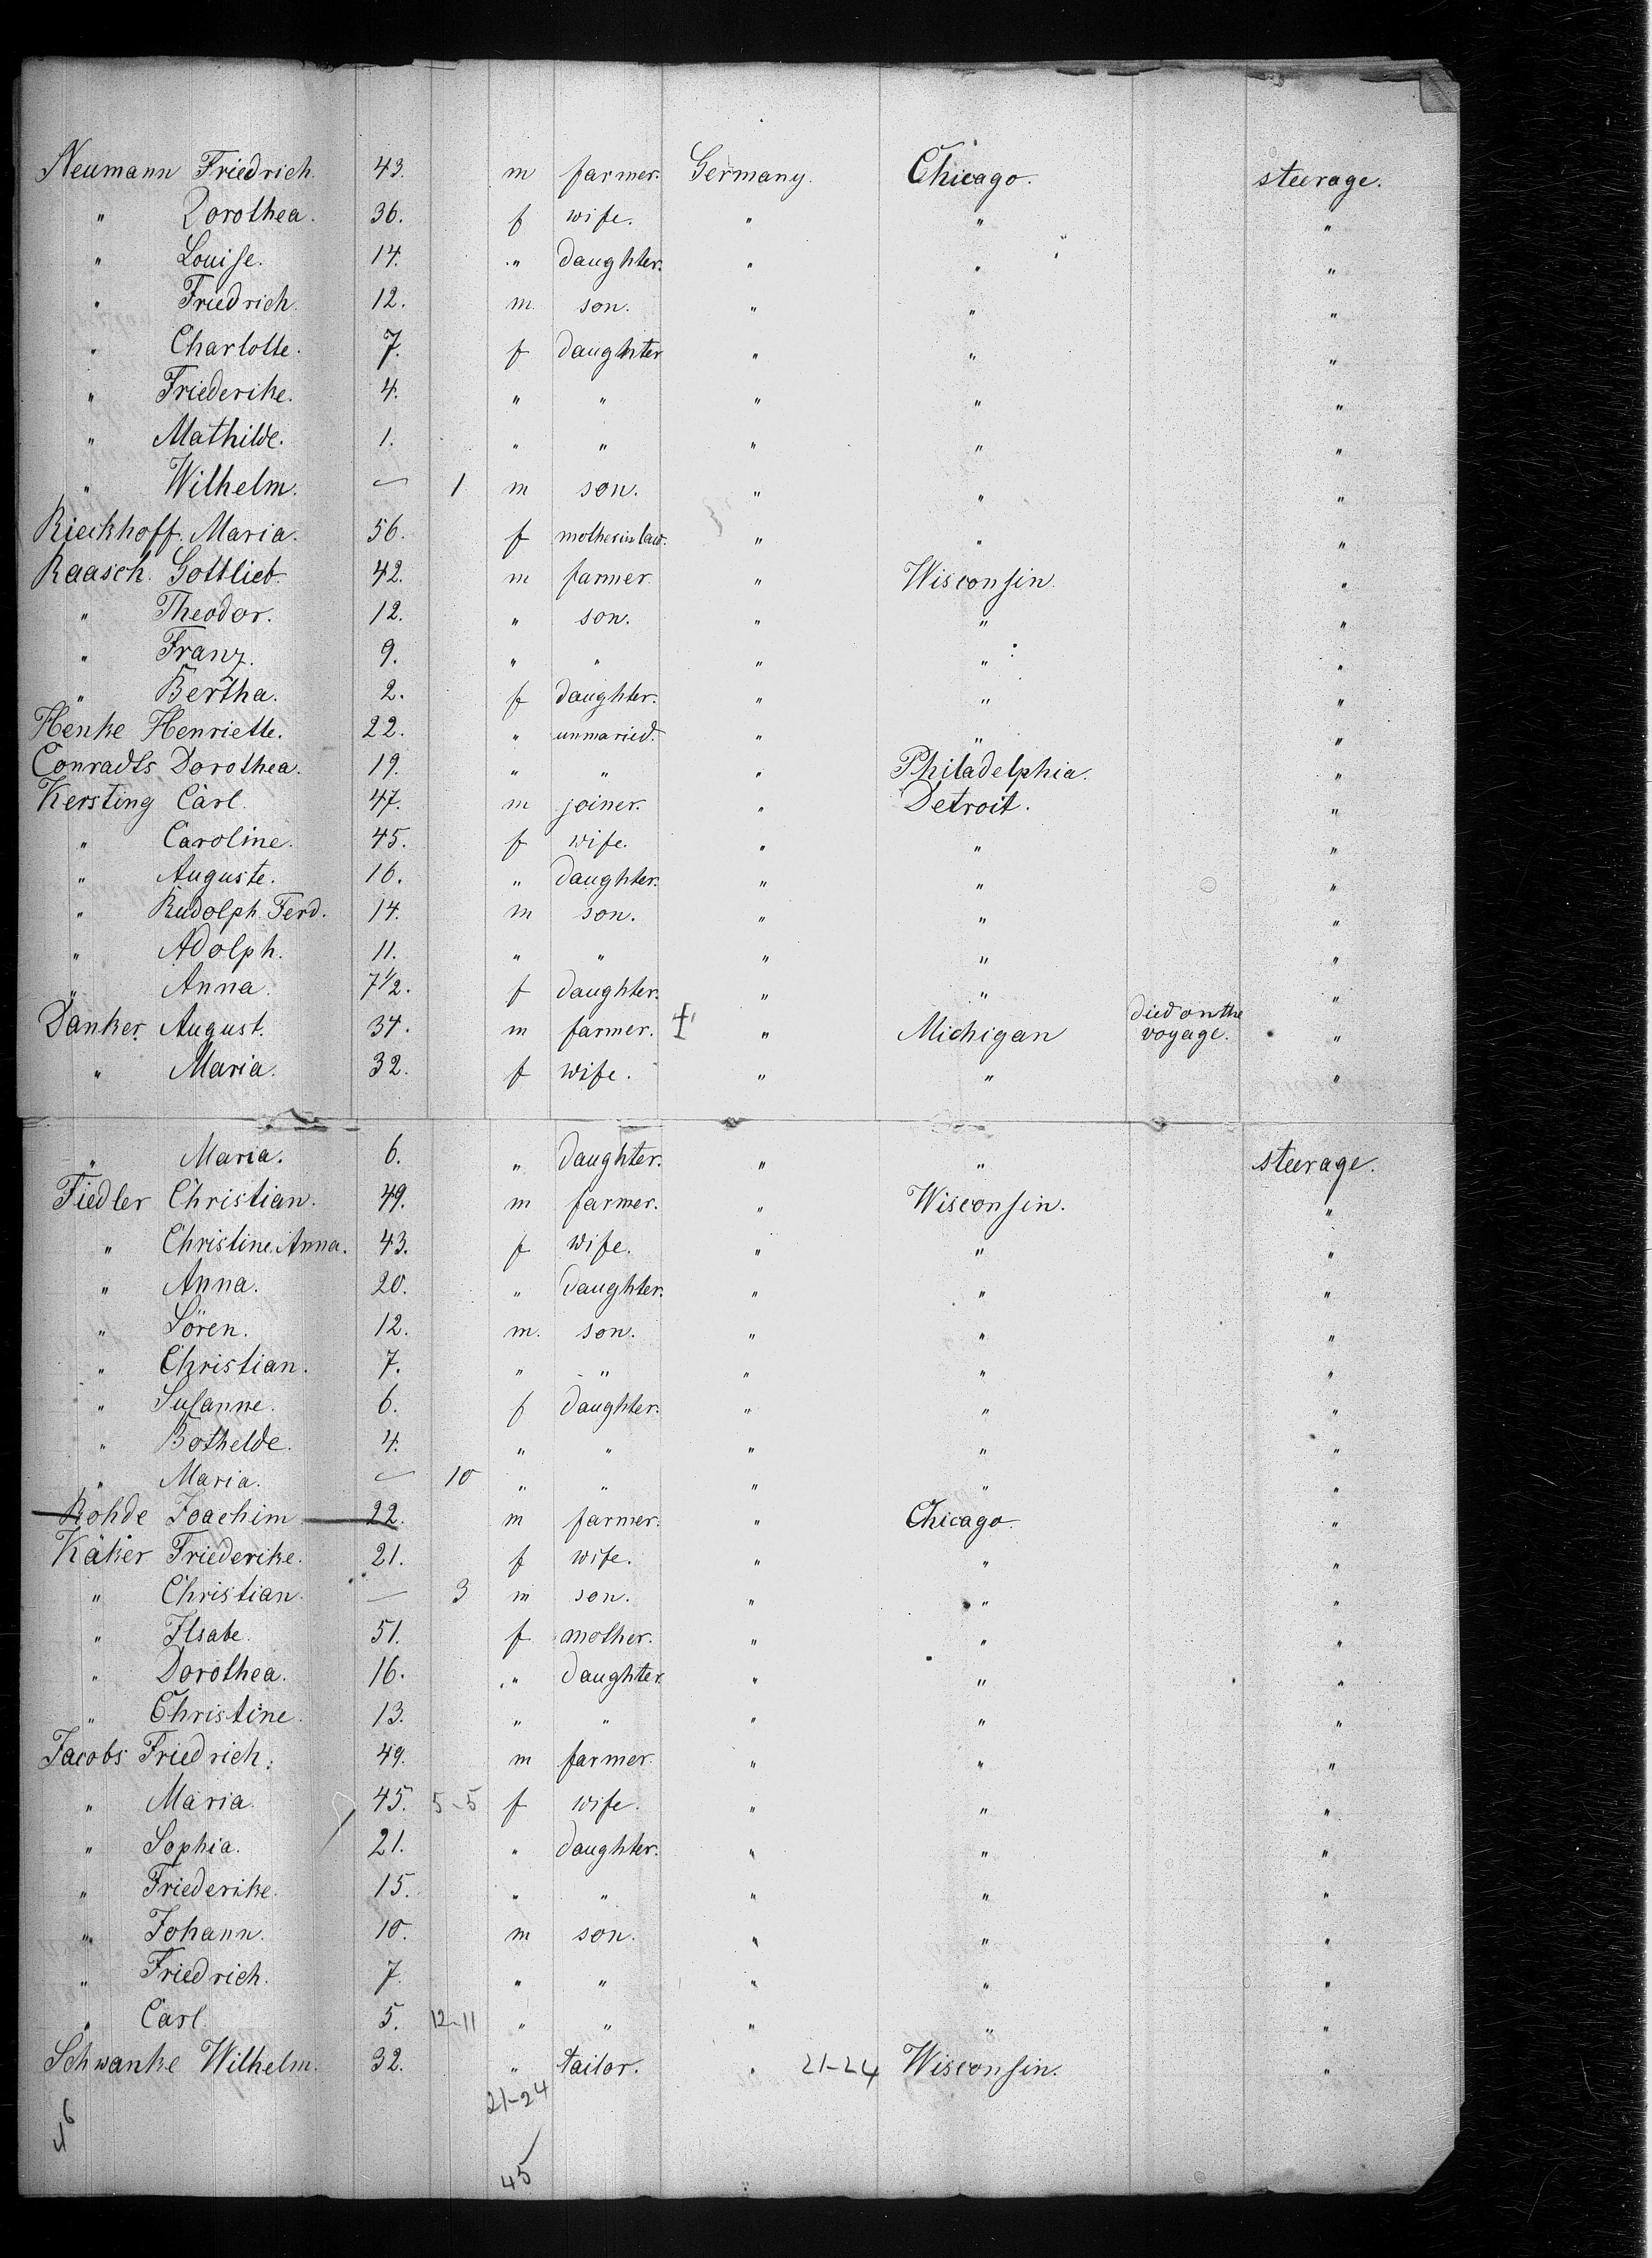 Neumann Friedrich. 43. m farmer. Germany. Chicago. steerage.
" Dorothea. 36. f wife. " " "
" Louise. 14. " daughter. " " "
" Friedrich. 12. m. son. " " "
" Charlotte. 7. f daughter " " "
" Friederike. 4. " " " " "
" Mathilde. 1. " " " " "
" Wilhelm. — 1 m son. " " "
Rieckhoff. Maria. 56. f mother in law. " " "
Raasch. Gottlieb. 42. m farmer " Wisconsin. "
" Theodor. 12. " son. " " "
" Franz. 9. " " " " "
" Bertha. 2. f daughter. " " "
Henke Henriette. 22. " unmaried. " " "
Conradts Dorothea. 19. " " " Philadelphia. "
Kersting Carl. 47. m joiner. " Detroit. "
" Caroline. 45. f wife. " " "
" Auguste. 16. " daughter. " " "
" Rudolph Ferd. 14. m son. " " "
" Adolph. 11. " " " " "
" Anna. 7 1/2. f daughter. " " "
Danker. August. 34. m farmer. " Michigan died on the voyage. "
" Maria. 32. f wife. " " "
" Maria. 6. " daughter. " " steerage.
Fiedler Christian. 49. m farmer. " Wisconsin. "
" Christine Anna. 43. f wife. " " "
" Anna. 20. " daughter. " " "
" Sören. 12. m. son. " " "
" Christian. 7. " " " " "
" Susanne. 6. f daughter. " " "
" Bothelde. 4. " " " " "
" Maria. — 10 " " " " "
Rohde Joachim 22. m farmer. " Chicago. "
Käker Friederike. 21. f wife. " " "
" Christian. — 3 m son. " " "
" Ilsabe. 51. f mother. " " "
" Dorothea. 16. " daughter. " " "
" Christine. 13. " " " " "
Jacobs Friedrich. 49. m farmer. " " "
" Maria. 45. 5-5 f wife. " " "
" Sophia. 21. " daughter. " " "
" Friederike. 15. " " " " "
" Johann. 10. m son. " " "
" Friedrich. 7. " " " " "
" Carl. 5. 12-11 " " " " "
Schwanke Wilhelm. 32. " tailor. " 21-24 Wisconsin. "
21-24
46
45